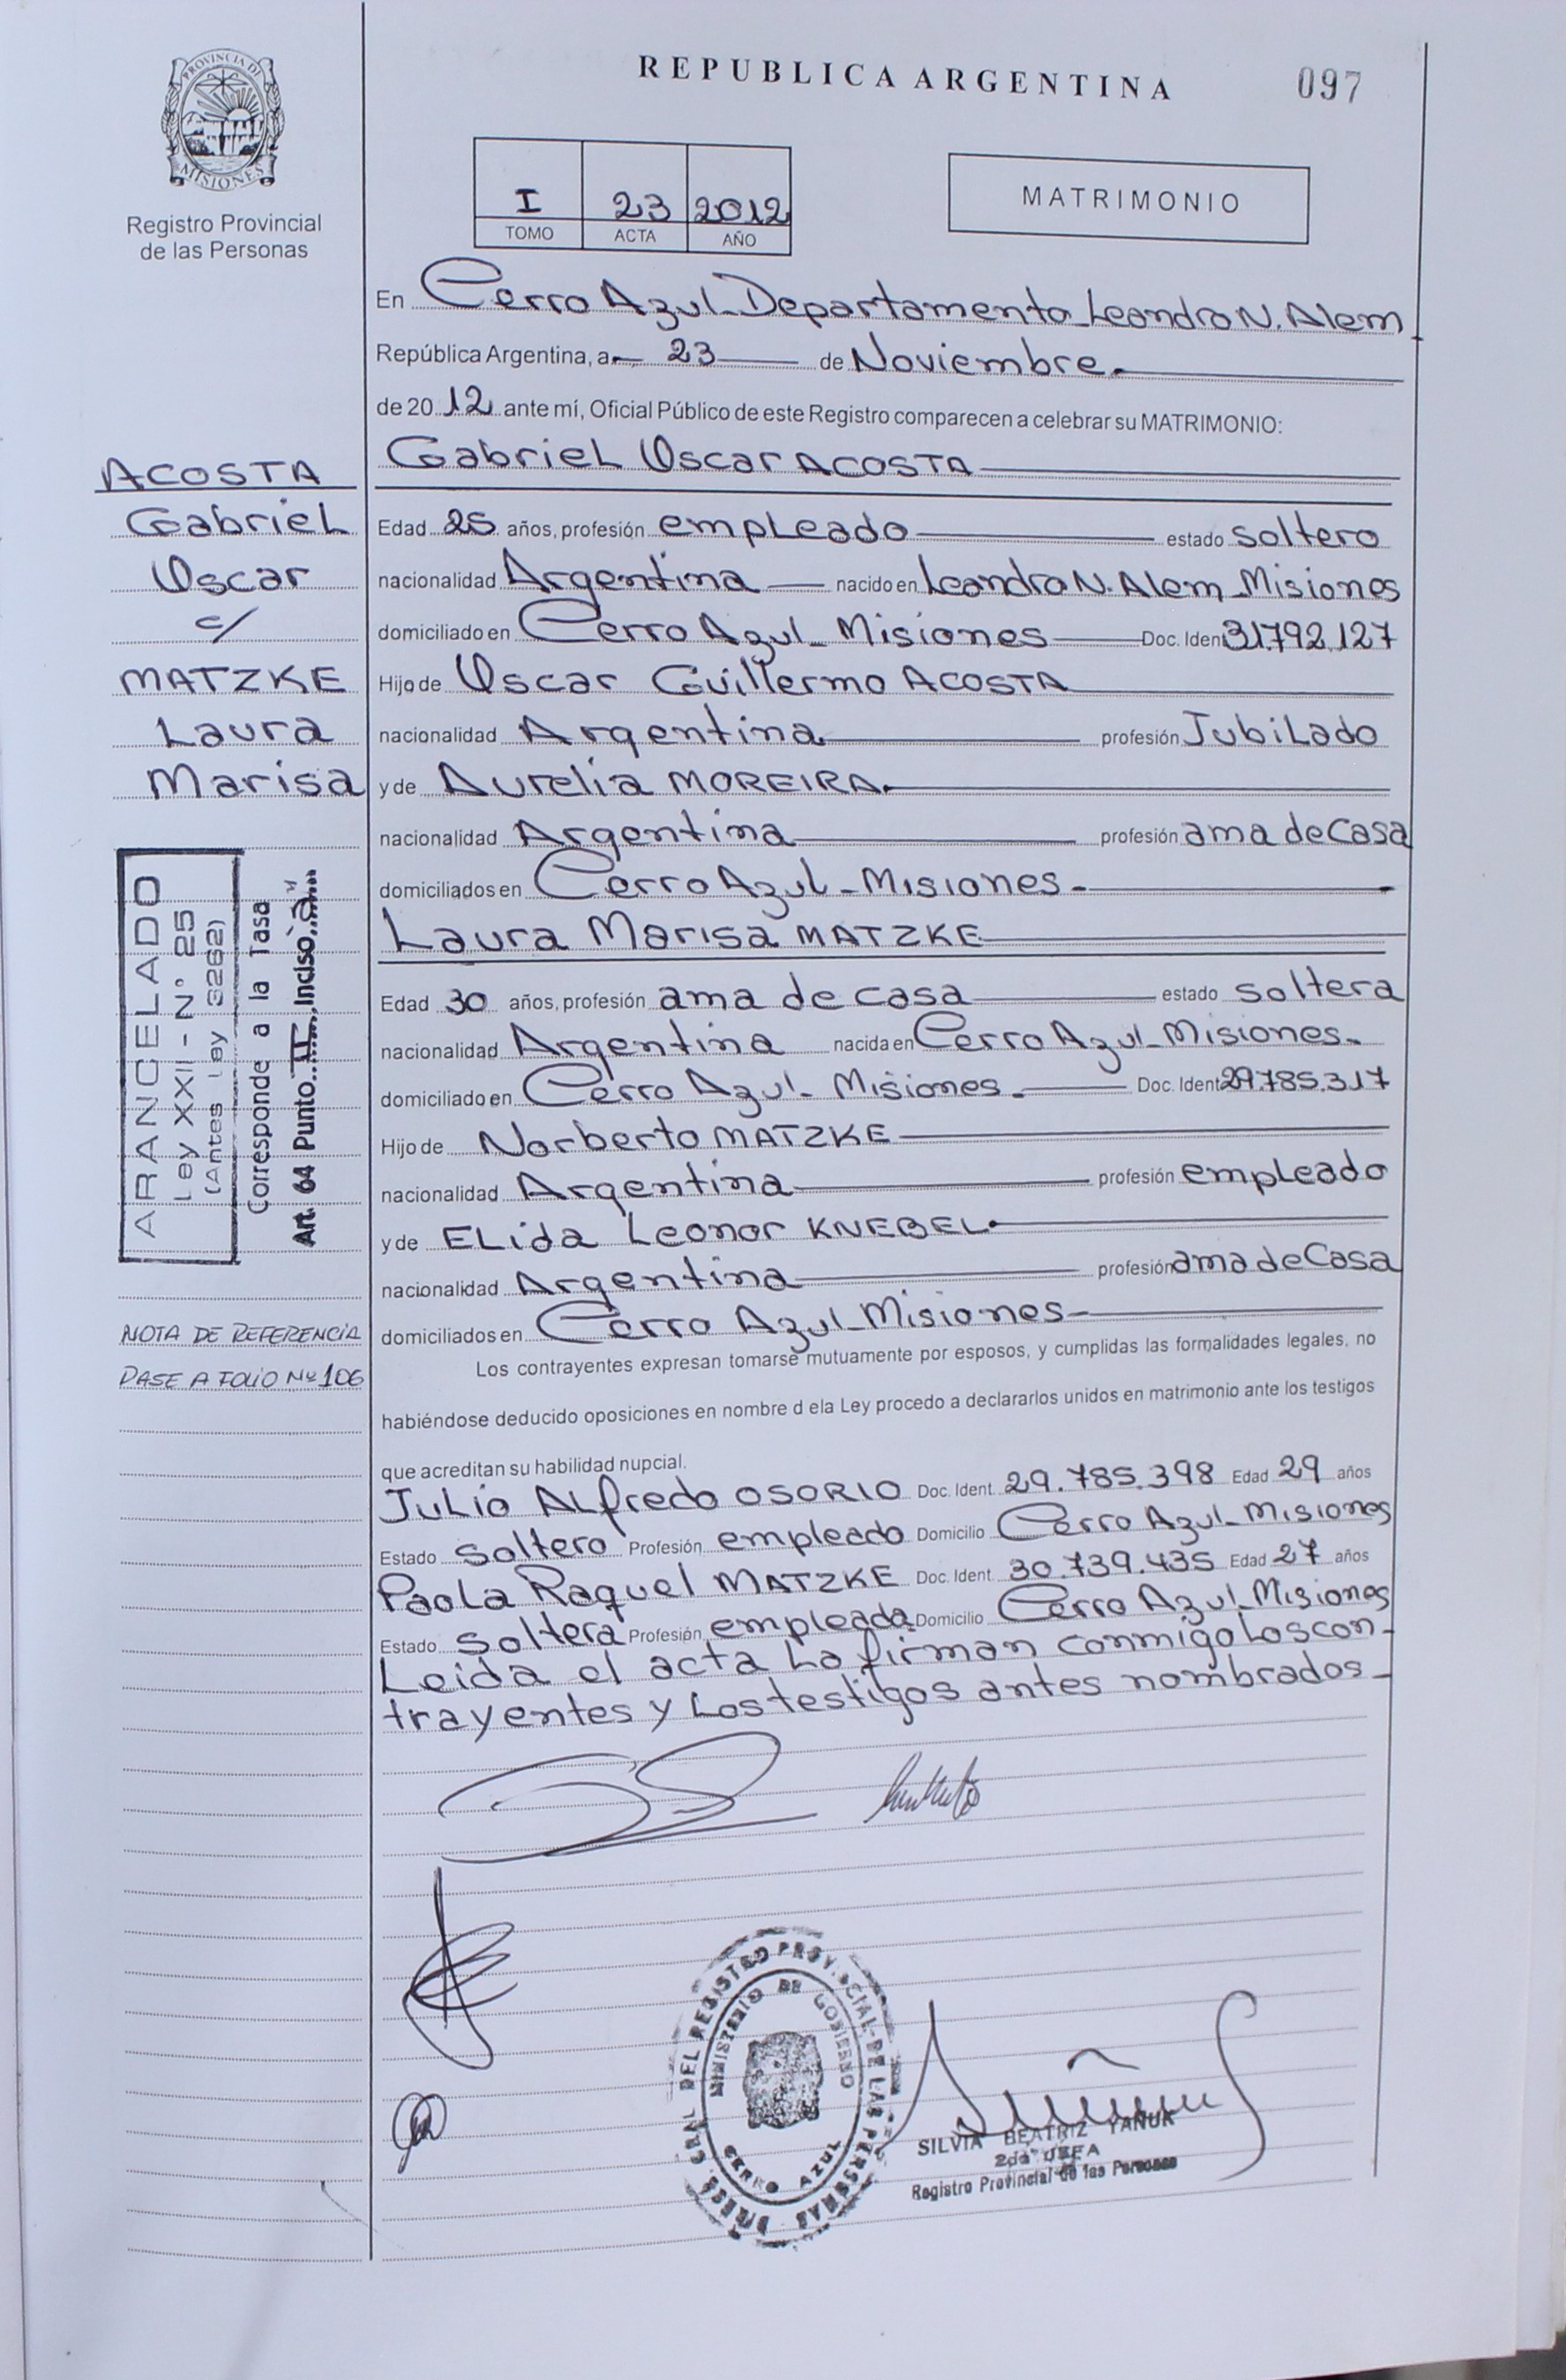 PROVINCIA DE
MISIONES
Registro Provincial
de las Personas
REPUBLICA ARGENTINA
097
I 23 2012
TOMO ACTA AÑO
MATRIMONIO
En Cerro Azul_Departamento_Leandro N. Alem_
República Argentina, a 23 de Noviembre.
de 2012 ante mí, Oficial Público de este Registro comparecen a celebrar su MATRIMONIO:
Gabriel Oscar ACOSTA
Edad 25 años, profesión empleado estado soltero
nacionalidad Argentina nacido en Leandro N. Alem_Misiones
domiciliado en Cerro Azul_Misiones Doc. Ident 31.792.127
Hijo de Oscar Guillermo ACOSTA
nacionalidad Argentina profesión Jubilado
y de Aurelia MOREIRA.
nacionalidad Argentina profesión ama de casa
domiciliados en Cerro Azul_Misiones.
Laura Marisa MATZKE
Edad 30 años, profesión ama de casa estado soltera
nacionalidad Argentina nacida en Cerro Azul_Misiones.
domiciliado en Cerro Azul_Misiones. Doc. Ident 29.785.317
Hijo de Norberto MATZKE
nacionalidad Argentina profesión empleado
y de Elida Leonor KNEBEL.
nacionalidad Argentina profesión ama de Casa
domiciliados en Cerro Azul_Misiones
Los contrayentes expresan tomarse mutuamente por esposos, y cumplidas las formalidades legales, no
habiéndose deducido oposiciones en nombre d ela Ley procedo a declararlos unidos en matrimonio ante los testigos
que acreditan su habilidad nupcial.
Julio Alfredo OSORIO Doc. Ident. 29.785.398 Edad 29 años
Estado soltero Profesión empleado Domicilio Cerro Azul_Misiones
Paola Raquel MATZKE Doc. Ident. 30.739.435 Edad 27 años
Estado soltera Profesión empleada Domicilio Cerro Azul_Misiones
Leida el acta la firman conmigo los con-
trayentes y los testigos antes nombrados_
ACOSTA
Gabriel
Oscar
c/
MATZKE
Laura
Marisa
ARANCELADO
Ley XXII - N° 25
(Antes ley 3262)
Corresponde a la Tasa
Art. 64 Punto II Inciso a"
NOTA DE REFERENCIA
PASE A FOLIO Nº 106
DIRECC. GRAL. DEL REGISTRO PROVINCIAL DE LAS PERSONAS
MINISTERIO DE GOBIERNO
CERRO AZUL
SILVIA BEATRIZ YAÑUK
2da JEFA
Registro Provincial de las Personas